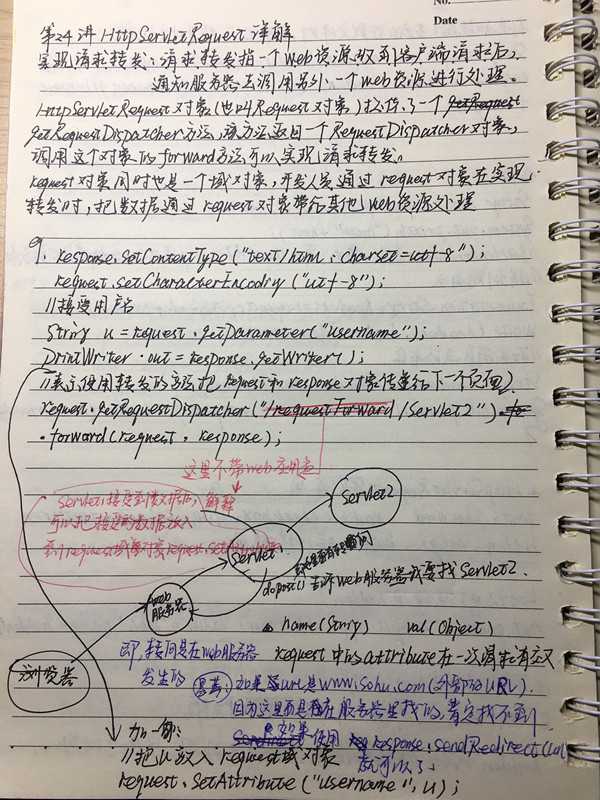 No.
Date
第24讲 HttpServletRequest 详解
实现请求转发：请求转发指一个web资源收到客户端请求后，
通知服务器去调用另外一个web资源进行处理。
HttpServletRequest对象(也叫Request对象)提供了一个 getRequest
getRequestDispatcher方法，该方法返回一个RequestDispatcher对象，
调用这个对象的forward方法可以实现请求转发。
request对象同时也是一个域对象，开发人员通过request对象在实现
转发时，把数据通过request对象带给其他web资源处理
eg. response.setContentType("text/html；charset=utf-8");
request.setCharacterEncoding("utf-8");
//接受用户名
String u = request.getParameter("username");
PrintWriter out = response.getWriter();
//表示使用转发的方法把request和response对象传递给下一个页面
request.getRequestDispatcher("/requestForward/Servlet2")
.forward(request, response);
这里不带web应用名
Servlet1接受到数据后，
可以把接受的数据放入
到request域对象request.set
解释
Servlet2
Servlet1
dopost() 告诉web服务器我要找Servlet2.
web
服务器
浏览器
name(String) val(Object)
即 转向是在web服务器
发生的
request中的attribute在一次请求有效
思考：如果该url是www.sohu.com(外部的URL).
因为这里面是在服务器里找的，肯定找不到
如果使用 response.sendRedirect(url
就可以了
加一句：
//把u放入request域对象
request.setAttribute("username", u);